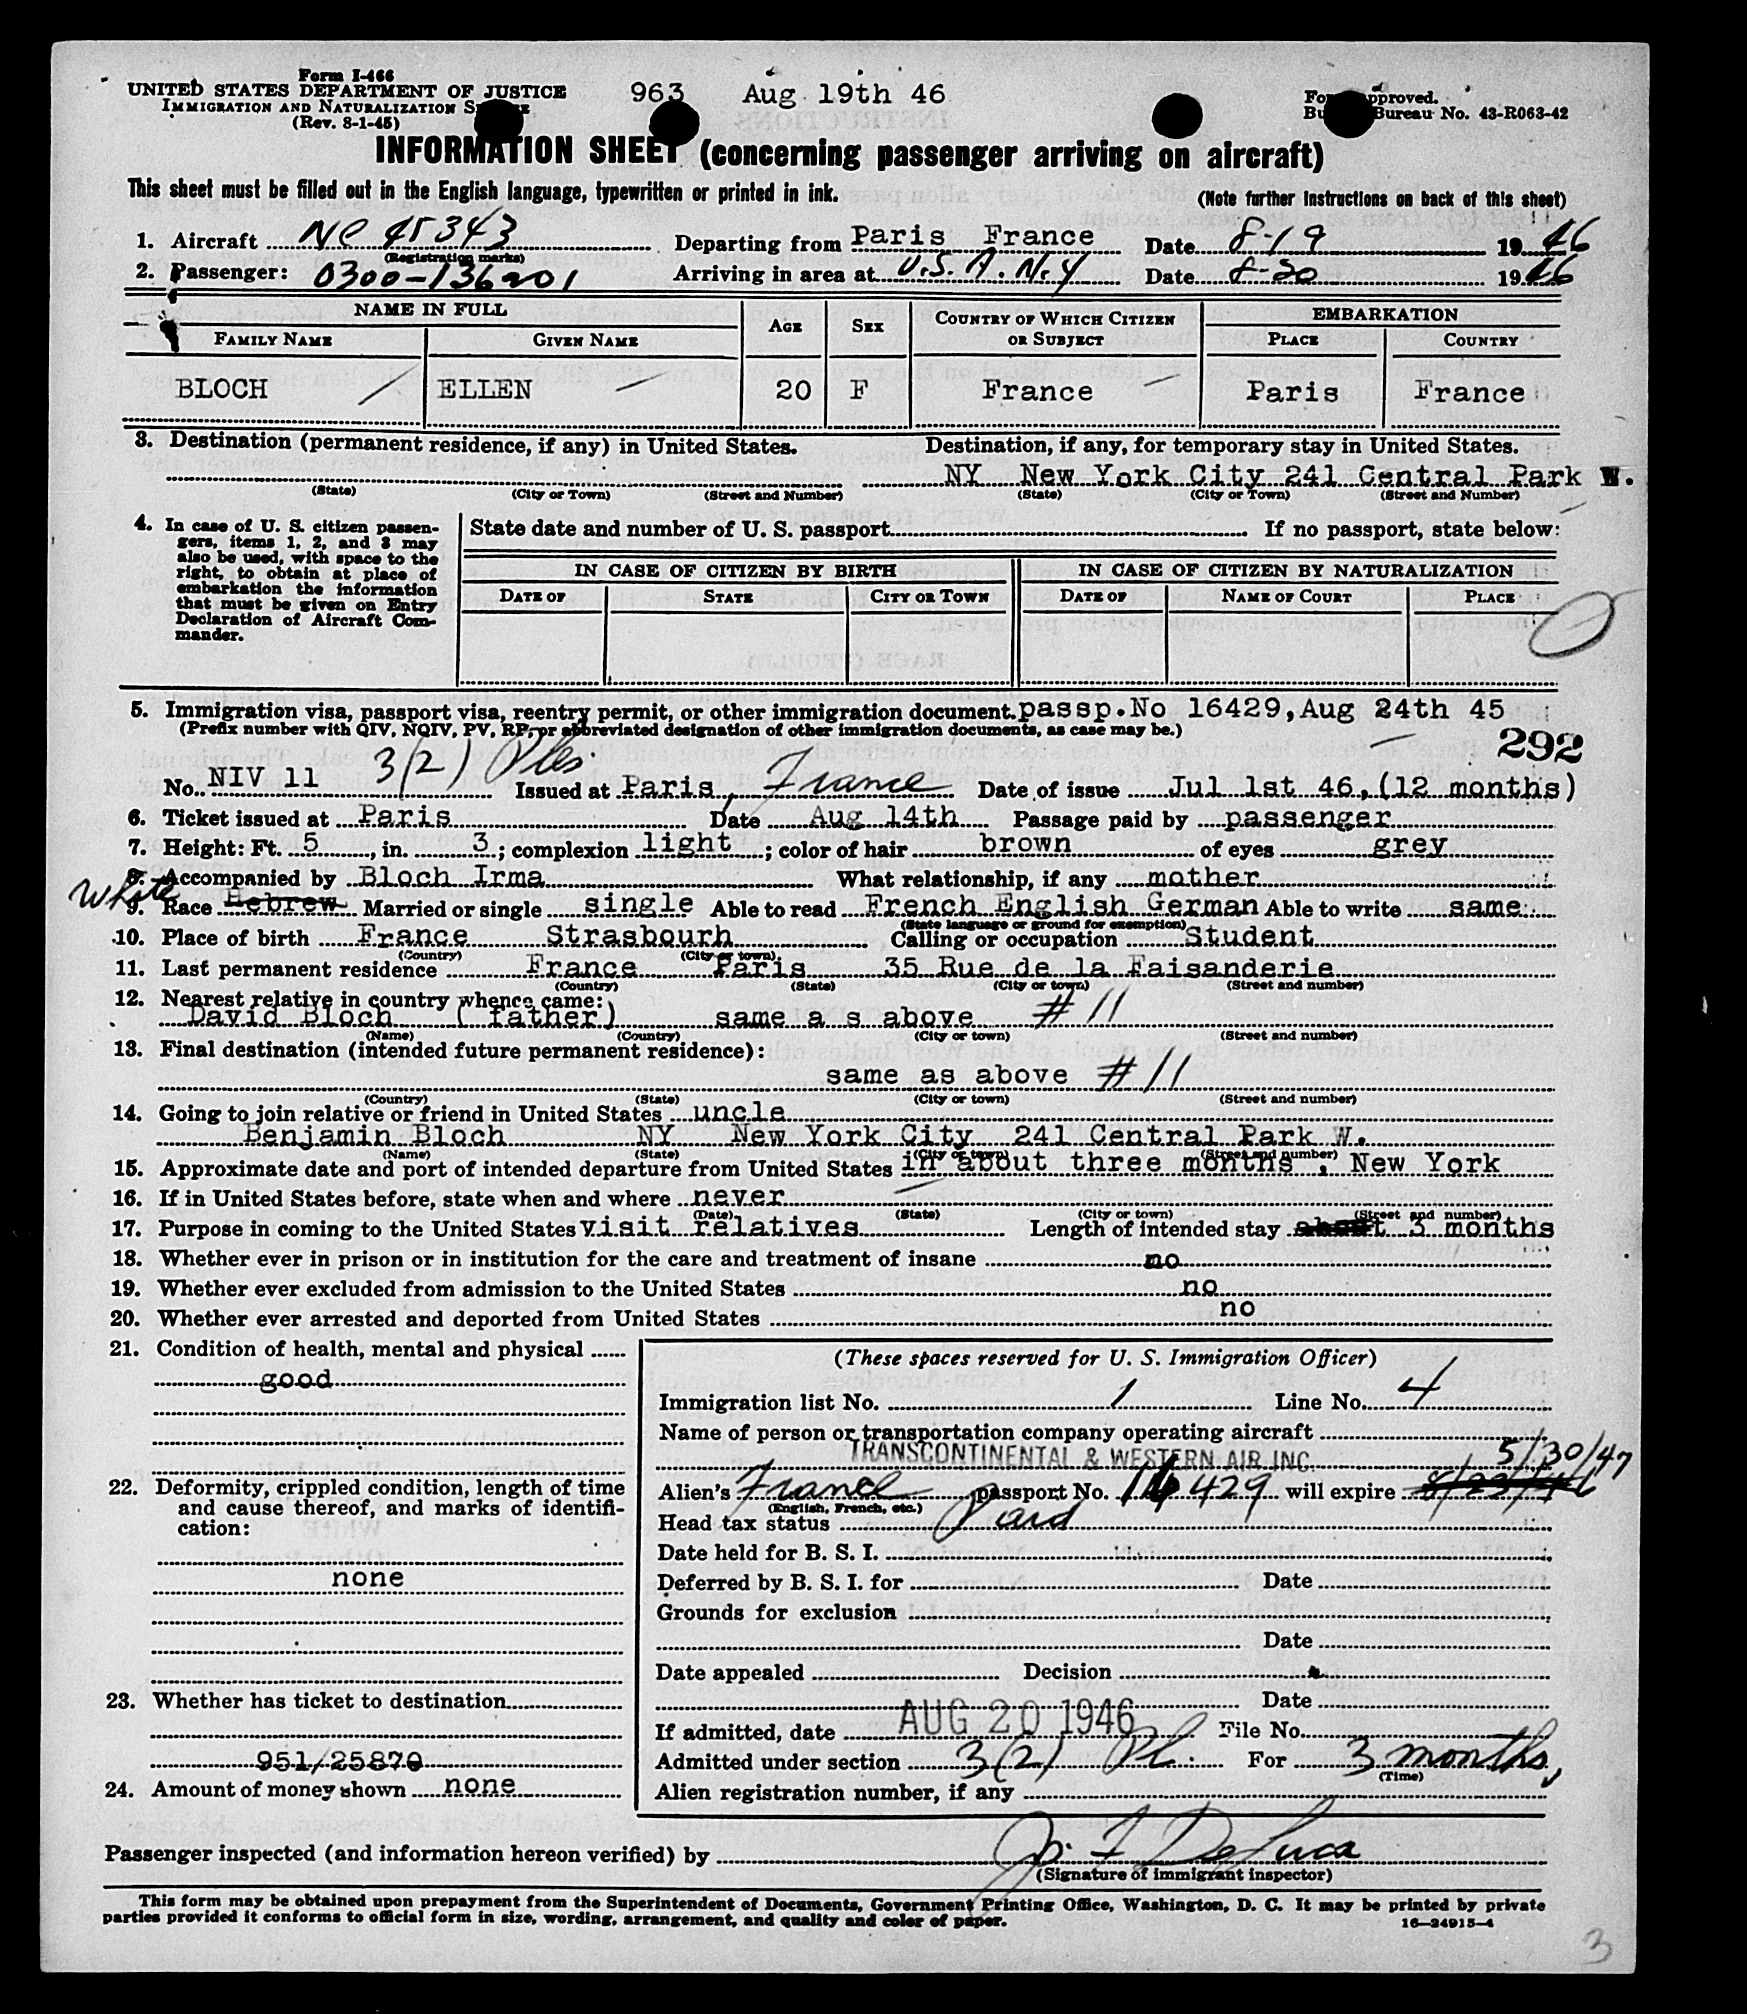 Form I-466
UNITED STATES DEPARTMENT OF JUSTICE
IMMIGRATION AND NATURALIZATION
(Rev. 8-1-45)
963 Aug 19th 46
approved.
Bureau No. 43-R063-42
INFORMATION SHEET (concerning passenger arriving on aircraft)
This sheet must be filled out in the English language, typewritten or printed in ink.
(Note further instructions on back of this sheet)
1. Aircraft NC 45343 Departing from Paris France Date 8-19 1946
(Registration marks)
2. Passenger: 0300-136201 Arriving in area at U.S.A. N.Y Date 8-20 1946
NAME IN FULL AGE SEX COUNTRY OF WHICH CITIZEN OR SUBJECT EMBARKATION
FAMILY NAME GIVEN NAME PLACE COUNTRY
BLOCH ELLEN 20 F France Paris France
3. Destination (permanent residence, if any) in United States. Destination, if any, for temporary stay in United States.
NY New York City 241 Central Park W.
(State) (City or Town) (Street and Number) (State) (City or Town) (Street and Number)
4. In case of U. S. citizen passengers, items 1, 2, and 3 may also be used, with space to the right, to obtain at place of embarkation the information that must be given on Entry Declaration of Aircraft Commander.
State date and number of U. S. passport If no passport, state below:
IN CASE OF CITIZEN BY BIRTH IN CASE OF CITIZEN BY NATURALIZATION
DATE OF STATE CITY OR TOWN DATE OF NAME OF COURT PLACE
5. Immigration visa, passport visa, reentry permit, or other immigration document. passp.No 16429, Aug 24th 45
(Prefix number with QIV, NQIV, PV, RP, or abbreviated designation of other immigration documents, as case may be.)
292
No. NIV 11 3(2) Issued at Paris, France Date of issue Jul 1st 46, (12 months)
6. Ticket issued at Paris Date Aug 14th Passage paid by passenger
7. Height: Ft. 5, in. 3; complexion light; color of hair brown of eyes grey
8. Accompanied by Bloch Irma What relationship, if any mother
White
9. Race Hebrew Married or single single Able to read French English German Able to write same
(State language or ground for exemption)
10. Place of birth France Strasbourh Calling or occupation Student
(Country) (City or town)
11. Last permanent residence France Paris 35 Rue de la Faisanderie
(Country) (State) (City or town) (Street and number)
12. Nearest relative in country whence came:
David Bloch ( father) same a s above # 11
(Name) (Country) (City or town) (Street and number)
13. Final destination (intended future permanent residence):
same as above # 11
(Country) (State) (City or town) (Street and number)
14. Going to join relative or friend in United States uncle
Benjamin Bloch NY New York City 241 Central Park W.
(Name) (State) (City or town) (Street and number)
15. Approximate date and port of intended departure from United States in about three months , New York
16. If in United States before, state when and where never
(Date) (State) (City or town) (Street and number)
17. Purpose in coming to the United States visit relatives Length of intended stay 3 months
18. Whether ever in prison or in institution for the care and treatment of insane no
19. Whether ever excluded from admission to the United States no
20. Whether ever arrested and deported from United States no
21. Condition of health, mental and physical
good
22. Deformity, crippled condition, length of time and cause thereof, and marks of identification:
none
23. Whether has ticket to destination
951/25870
24. Amount of money shown none
(These spaces reserved for U. S. Immigration Officer)
Immigration list No. 1 Line No. 4
Name of person or transportation company operating aircraft
TRANSCONTINENTAL & WESTERN AIR INC.
5/30/47
Alien's French passport No. 16429 will expire
(English, French, etc.)
Head tax status Paid
Date held for B. S. I.
Deferred by B. S. I. for Date
Grounds for exclusion
Date
Date appealed Decision
Date
If admitted, date AUG 20 1946 File No.
Admitted under section 3(2) For 3 months,
(Time)
Alien registration number, if any
Passenger inspected (and information hereon verified) by
(Signature of immigrant inspector)
This form may be obtained upon prepayment from the Superintendent of Documents, Government Printing Office, Washington, D. C. It may be printed by private
parties provided it conforms to official form in size, wording, arrangement, and quality and color of paper.
16—24915-4
3